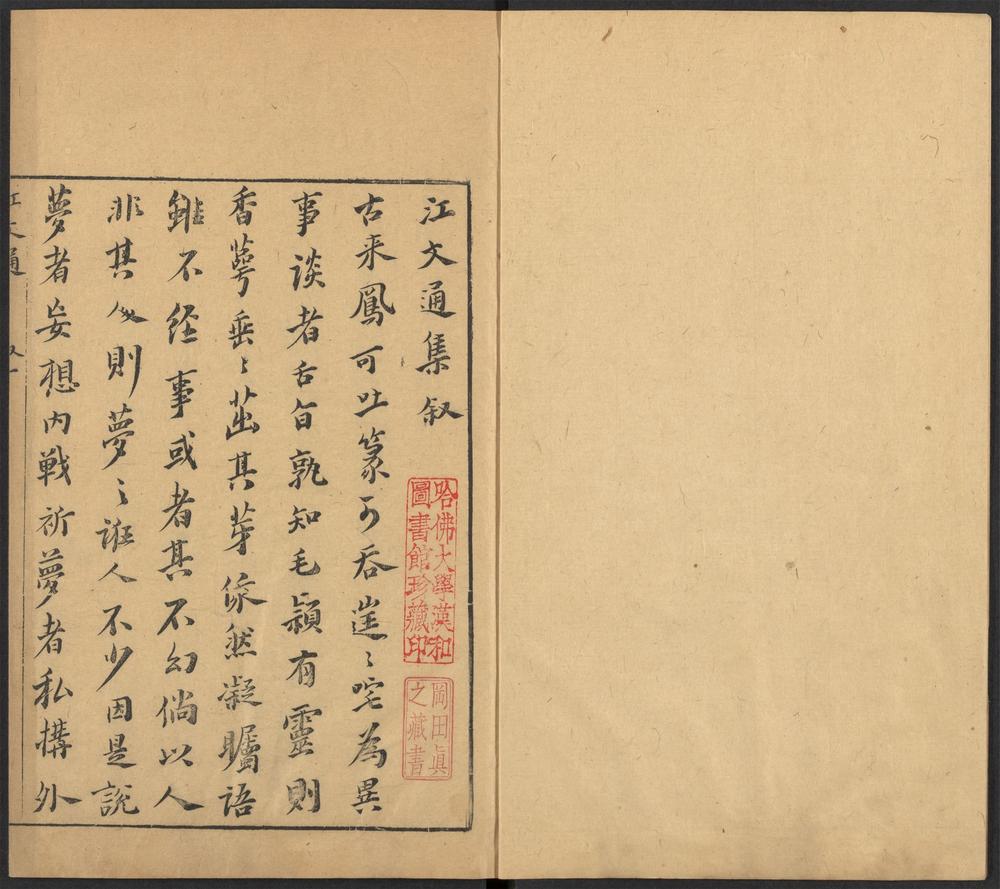 江文通集叙
古来鳳可吐篆可吞崖〻咤為異
事談者舌旨孰知毛穎有靈則
香萼垂〻茁其芽依然凝矚語
雖不経事或者其不幻倘以人
非其人則夢〻誑人不少因是說
夢者妄想内戦祈夢者私搆外
江文通 叙一
哈佛大學漢和
圖書館珍藏印
岡田眞
之藏書